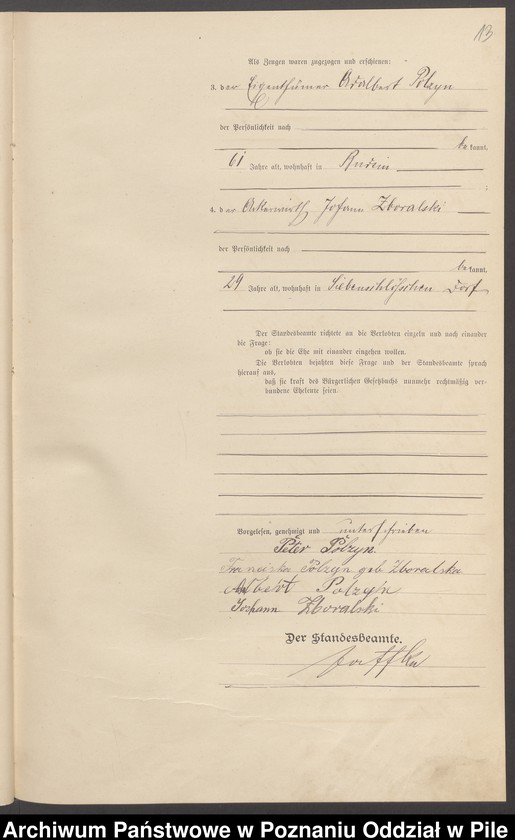 13
Als Zeugen waren zugezogen und erschienen:
3. der Eigenthümer Adalbert Polzyn
der Persönlichkeit nach
be kannt,
61 Jahre alt, wohnhaft in
4. der Ackerwirth Johann Zboralski
der Persönlichkeit nach
be kannt,
29 Jahre alt, wohnhaft in Siebenschlößchen Dorf
Der Standesbeamte richtete an die Verlobten einzeln und nach einander
die Frage:
ob sie die Ehe mit einander eingehen wollen.
Die Verlobten bejahten diese Frage und der Standesbeamte sprach
hierauf aus,
daß sie kraft des Bürgerlichen Gesetzbuchs nunmehr rechtmäßig ver-
bundene Eheleute seien.
Vorgelesen, genehmigt und unterschrieben
Peter Polzyn
Franciska Polzyn geb Zboralska
Albert Polzyn
Johann Zboralski
Der Standesbeamte.
Archiwum Państwowe w Poznaniu Oddział w Pile